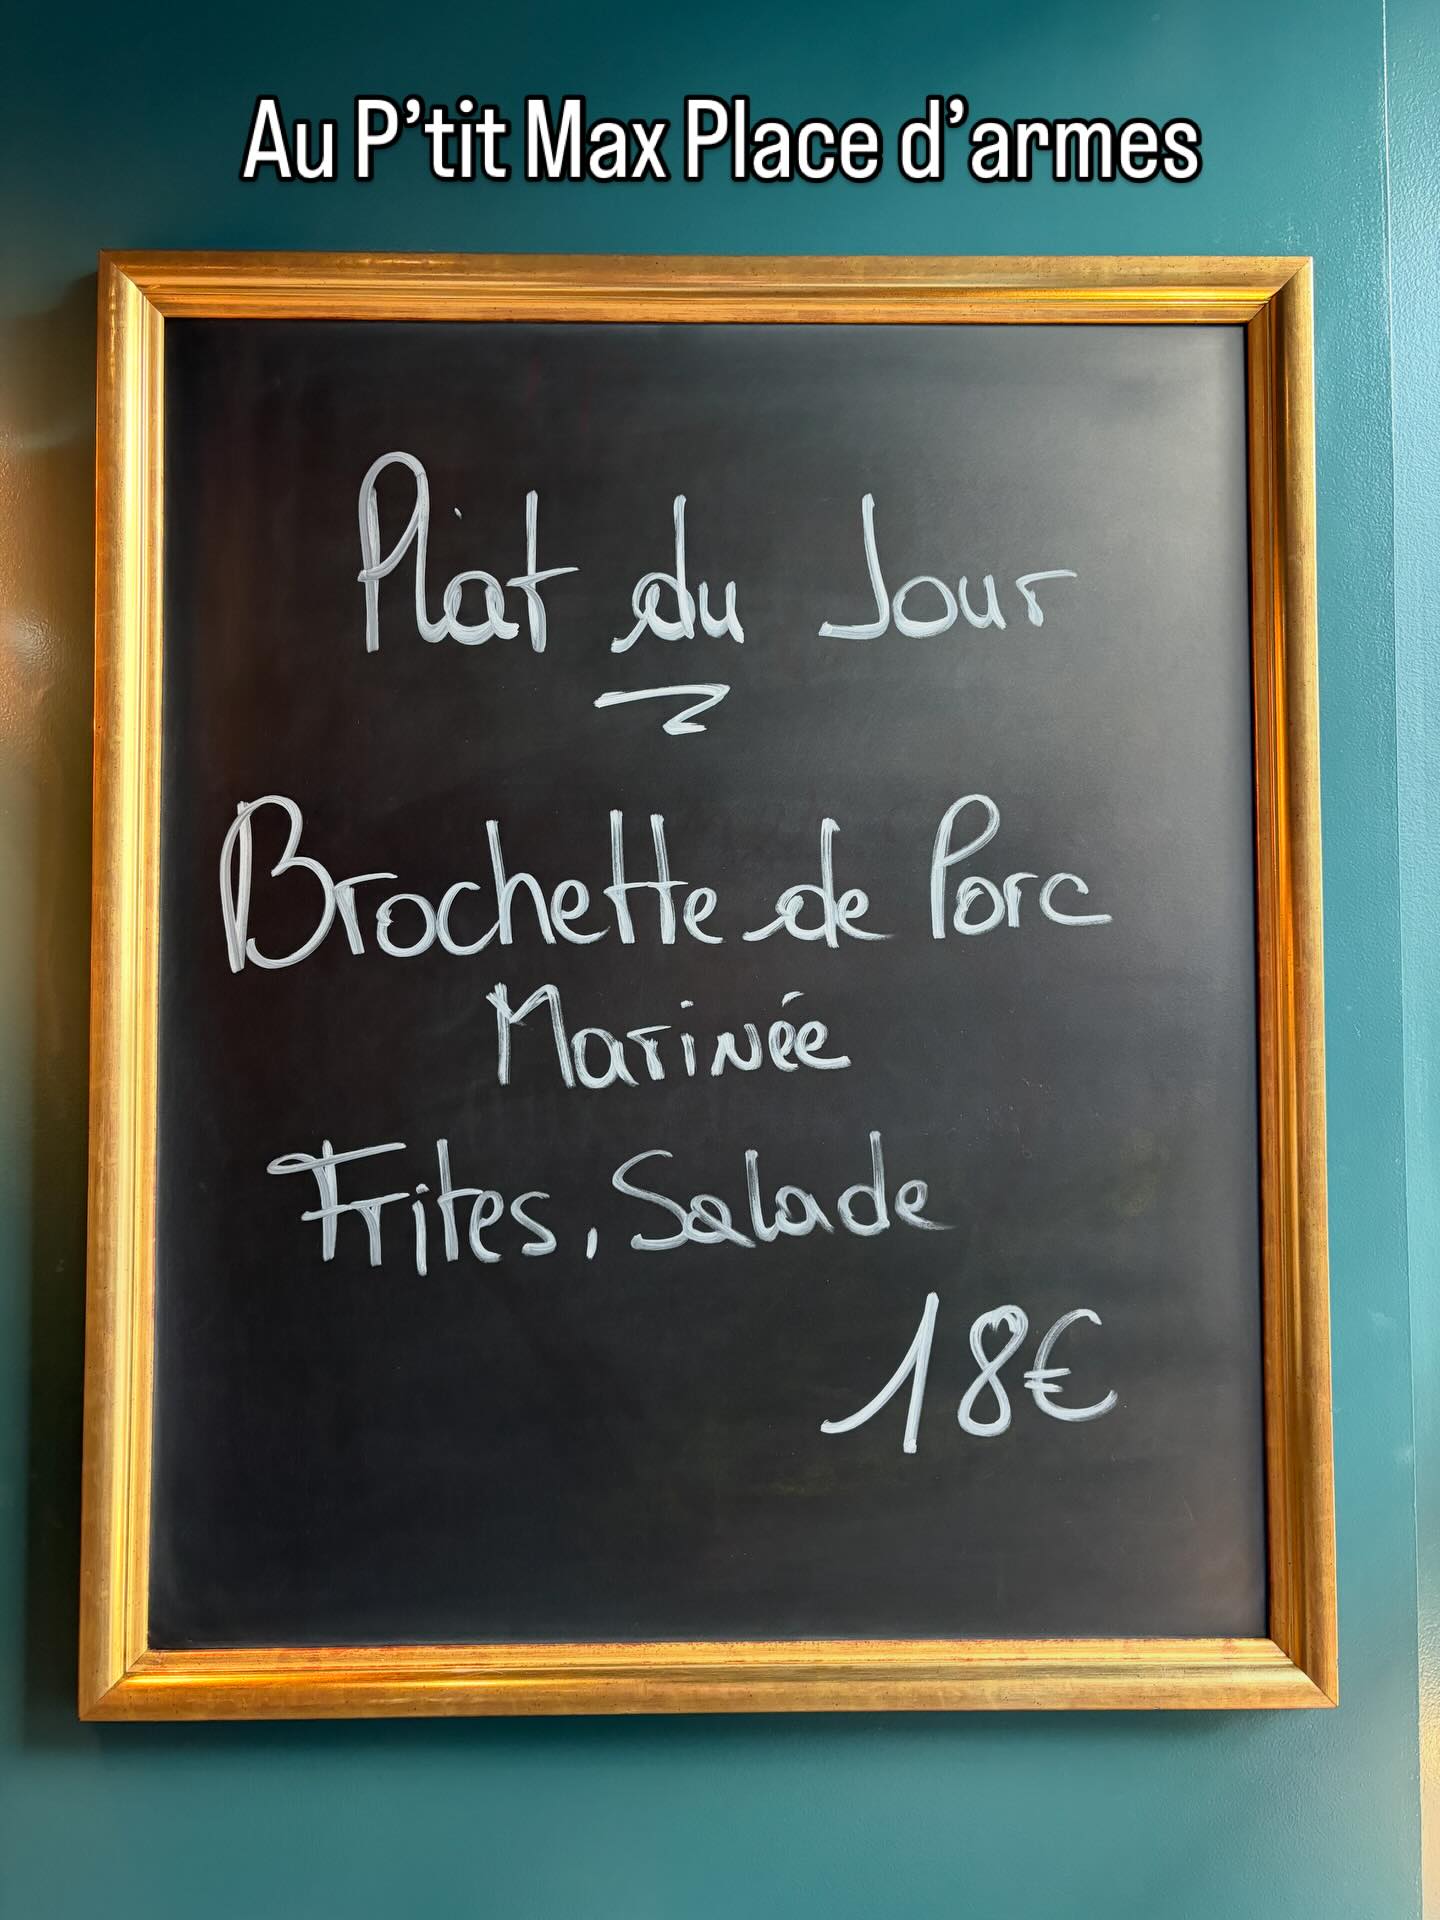 Au P’tit Max Place d’armes
Plat du Jour
Brochette de Porc
Marinée
Frites, Salade
18€